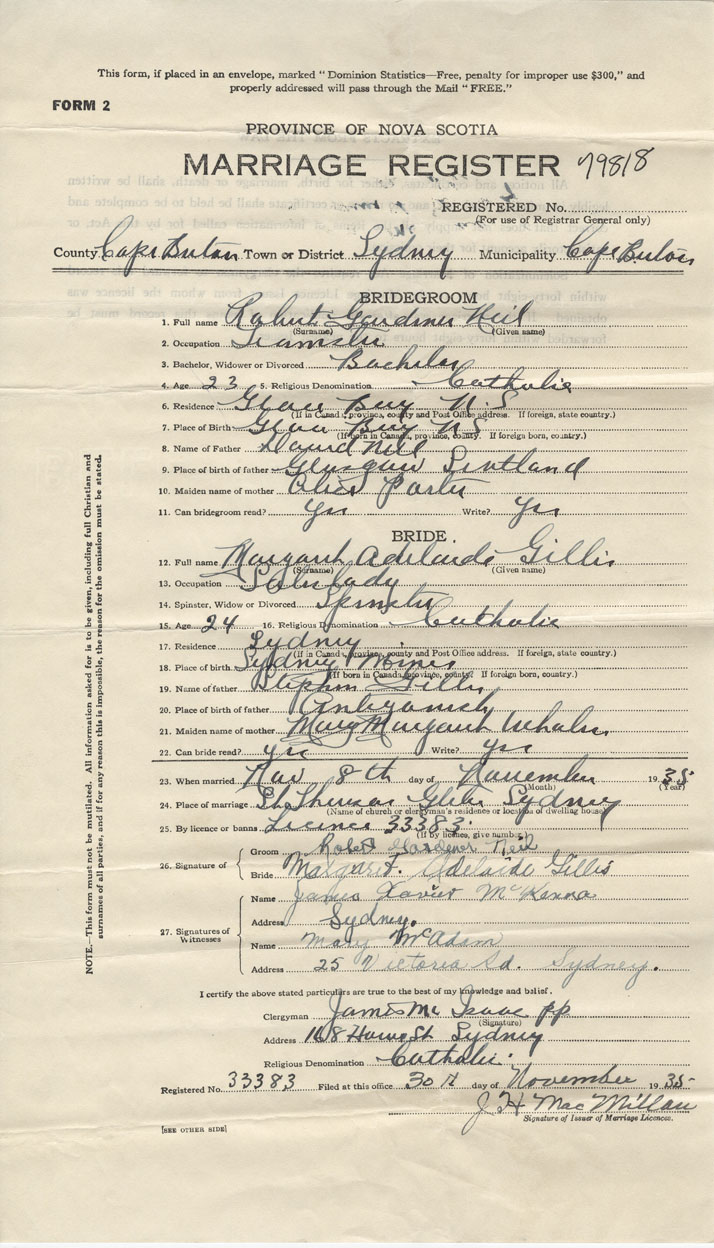 This form, if placed in an envelope, marked "Dominion Statistics—Free, penalty for improper use $300," and
properly addressed will pass through the Mail "FREE."
FORM 2
PROVINCE OF NOVA SCOTIA
MARRIAGE REGISTER 79818
REGISTERED No.
(For use of Registrar General only)
County Cape Breton Town or District Sydney Municipality Cape Breton
BRIDEGROOM
1. Full name Robert Gardner Neil
(Surname) (Given name)
2. Occupation Teamster
3. Bachelor, Widower or Divorced Bachelor
4. Age 23 5. Religious Denomination Catholic
6. Residence Glace Bay N.S
(If in Canada, province, county and Post Office address. If foreign, state country.)
7. Place of Birth Glace Bay NS
(If born in Canada, province, county. If foreign born, country.)
8. Name of Father David Neil
9. Place of birth of father Glasgow Scotland
10. Maiden name of mother Alice Porter
11. Can bridegroom read? Yes Write? Yes
BRIDE.
12. Full name Margaret Adelaide Gillis
(Surname) (Given name)
13. Occupation Saleslady
14. Spinster, Widow or Divorced Spinster
15. Age 24 16. Religious Denomination Catholic
17. Residence Sydney
(If in Canada, province, county and Post Office address. If foreign, state country.)
18. Place of birth Sydney Mines
(If born in Canada, province, county? If foreign born, country.)
19. Name of father Stephen Gillis
20. Place of birth of father Antigonish
21. Maiden name of mother Mary Margaret Whalen
22. Can bride read? yes Write? yes
23. When married Nov 8th day of November 1935
(Month) (Year)
24. Place of marriage Sydney
(Name of church or clergyman's residence or location of dwelling house)
25. By licence or banns Licence 33383
(If by licence, give number)
26. Signature of
Groom Robert Gardener Neil
Bride Margaret Adelaide Gillis
27. Signatures of Witnesses
Name James Xavier McKenna
Address Sydney.
Name Mary McAdam
Address 25 Victoria Rd. Sydney.
I certify the above stated particulars are true to the best of my knowledge and belief.
Clergyman James Mc Isaac pp
(Signature)
Address 168 Howe St Sydney
Religious Denomination Catholic.
Registered No. 33383 Filed at this office 30th day of November 1935
J H MacMillan
Signature of Issuer of Marriage Licences.
[SEE OTHER SIDE]
NOTE.—This form must not be mutilated. All information asked for is to be given, including full Christian and
surnames of all parties, and if for any reason this is impossible, the reason for the omission must be stated.